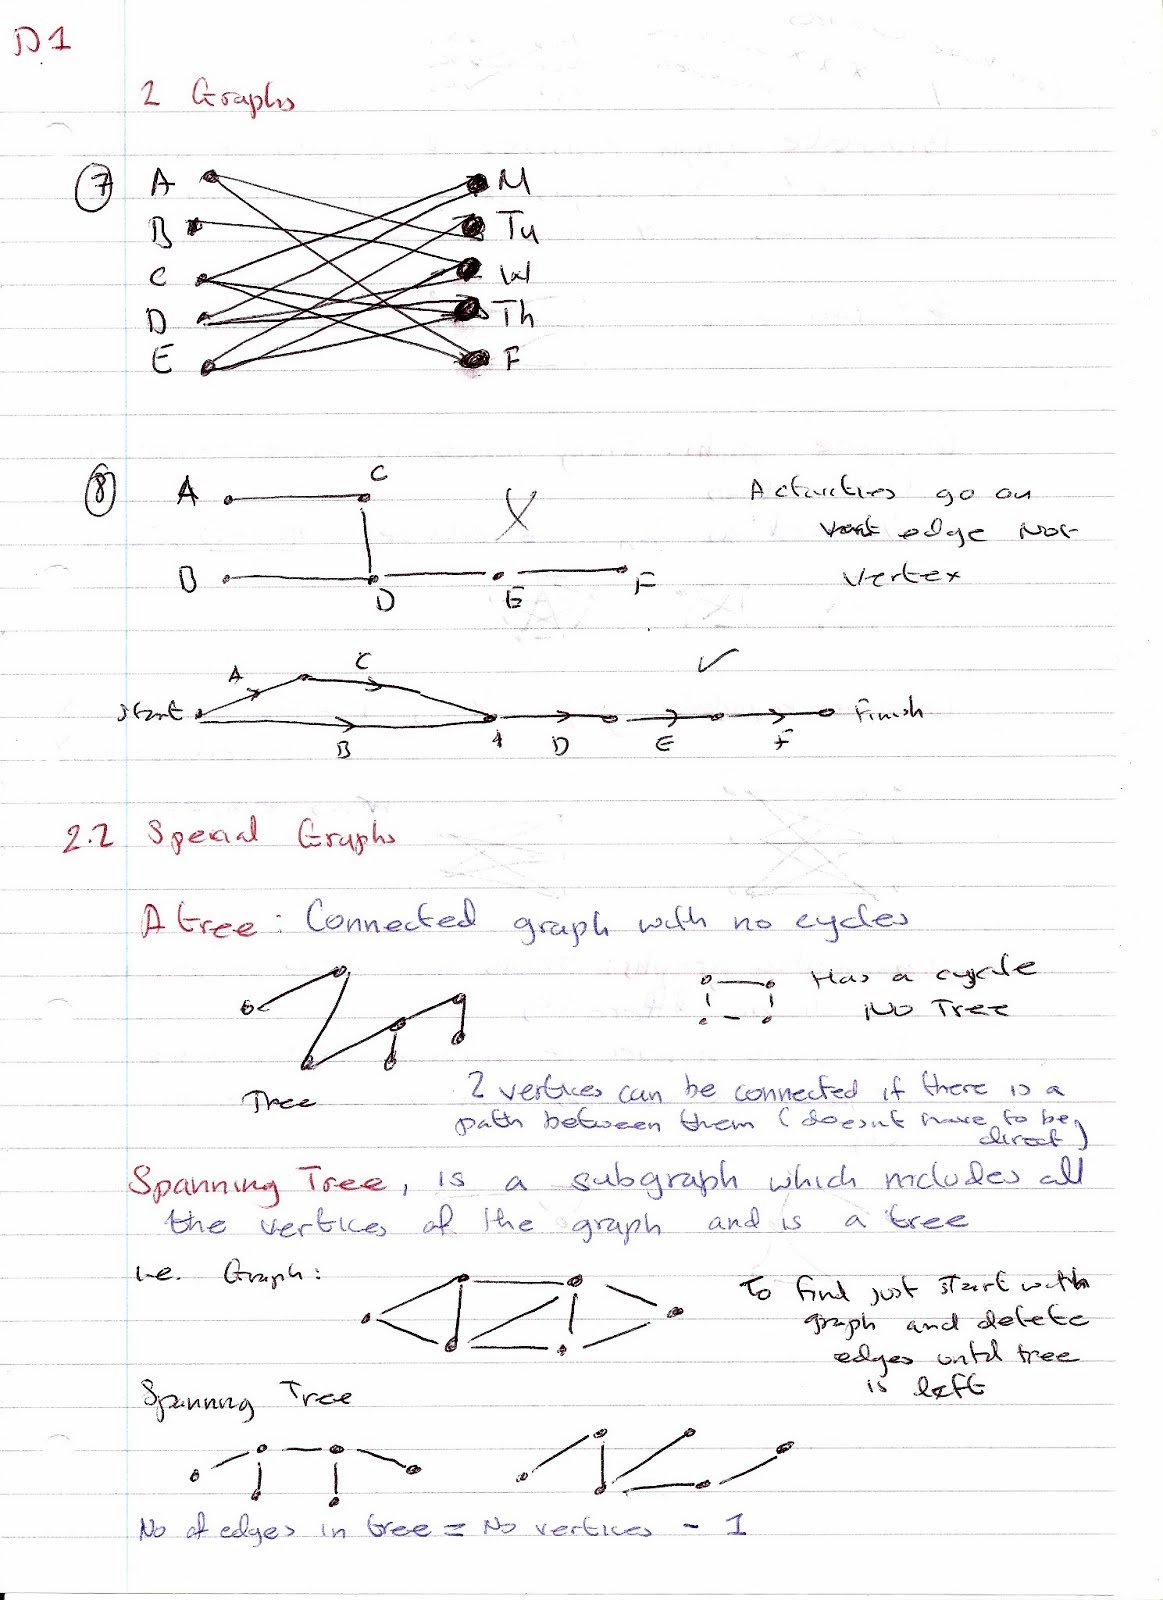 D1
2 Graphs
7 A M
B Tu
C W
D Th
E F
8 A C
Activities go on
edge not
vertex
B D E F
A C
Start Finish
B D E F
2.2 Special Graphs
A tree: Connected graph with no cycles
Has a cycle
No Tree
Tree
2 vertices can be connected if there is a
path between them (doesnt have to be
direct)
Spanning Tree, is a subgraph which includes all
the vertices of the graph and is a tree
i.e. Graph:
To find just start with
graph and delete
edges until tree
is left
Spanning Tree
No of edges in tree = No vertices - 1